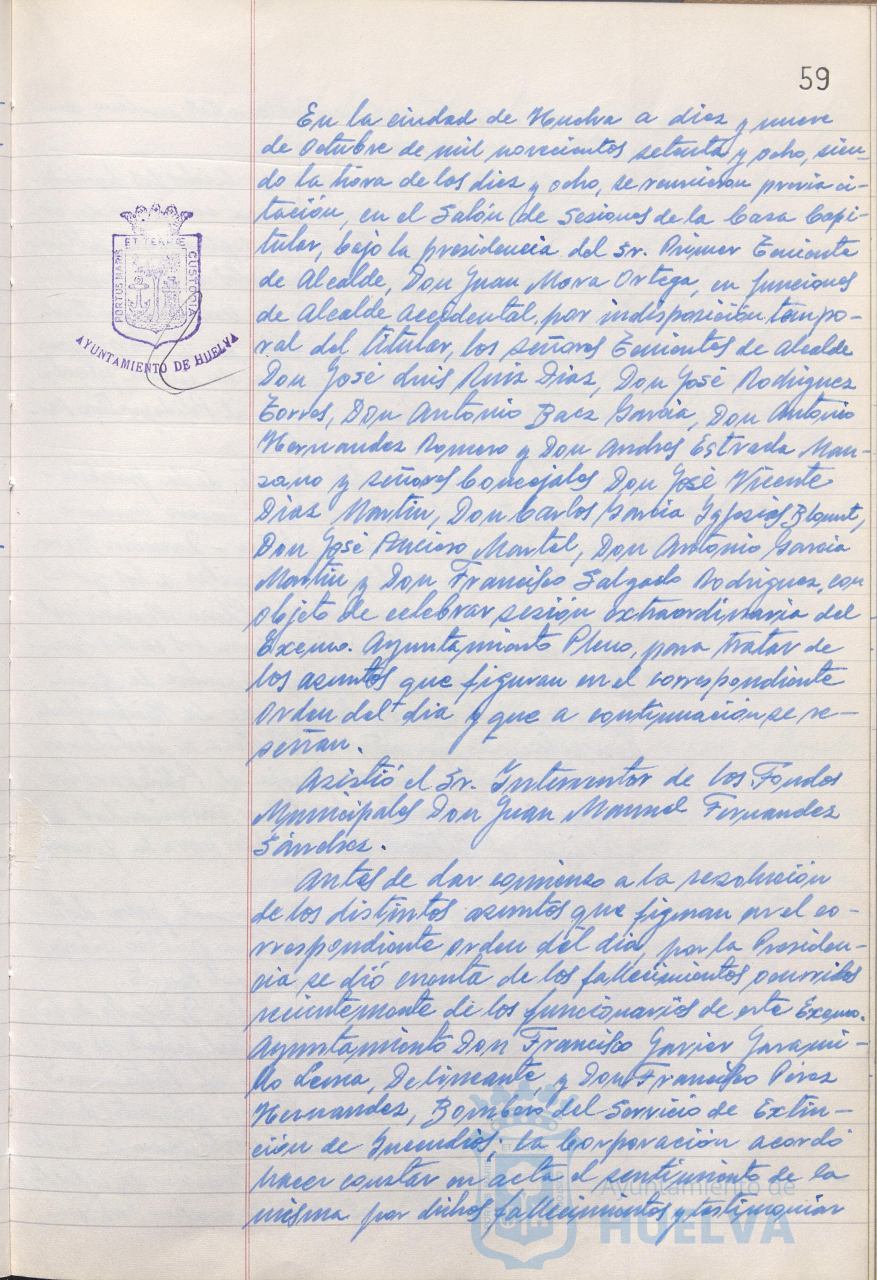 59
En la ciudad de Huelva a diez y nueve
de Octubre de mil novecientos setenta y ocho, sien-
do la hora de las diez y ocho, se reunieron previa ci-
tación, en el Salón de Sesiones de la Casa Capi-
tular, bajo la presidencia del Sr. Primer Teniente
de Alcalde, Don Juan Mora Ortega, en funciones
de Alcalde Accidental, por indisposición tempo-
ral del titular, los señores Tenientes de Alcalde
Don José Luis Ruiz Diaz, Don José Rodriguez
Torres, Don Antonio Baez Garcia, Don Antonio
Hernandez Romero y Don Andres Estrada Man-
zano y señores Concejales Don José Vicente
Diaz Martin, Don Carlos Garcia Iglesias Blqunt,
Don José Martel, Don Antonio Garcia
Martin y Don Francisco Salgado Rodriguez, con
objeto de celebrar sesión extraordinaria del
Excmo. Ayuntamiento Pleno, para tratar de
los asuntos que figuran en el correspondiente
Orden del dia y que a continuación se re-
señan.
Asistió el Sr. Interventor de los Fondos
Municipales Don Juan Manuel Fernandez
Sánchez.
Antes de dar comienzo a la resolución
de los distintos asuntos que figuran en el co-
rrespondiente orden del dia, por la Presiden-
cia se dió cuenta de los fallecimientos ocurridos
recientemente de los funcionarios de este Excmo.
Ayuntamiento Don Francisco Javier Jarami-
llo Lema, Delineante, y Don Francisco Pérez
Hernandez, Bombero del Servicio de Extin-
ción de Incendios; la Corporación acordó
hacer constar en acta el sentimiento de la
misma por dichos fallecimientos y testimoniar
PORTUS MARIS
ET TERRE
CUSTODIA
AYUNTAMIENTO DE HUELVA
Ayuntamiento de
HUELVA